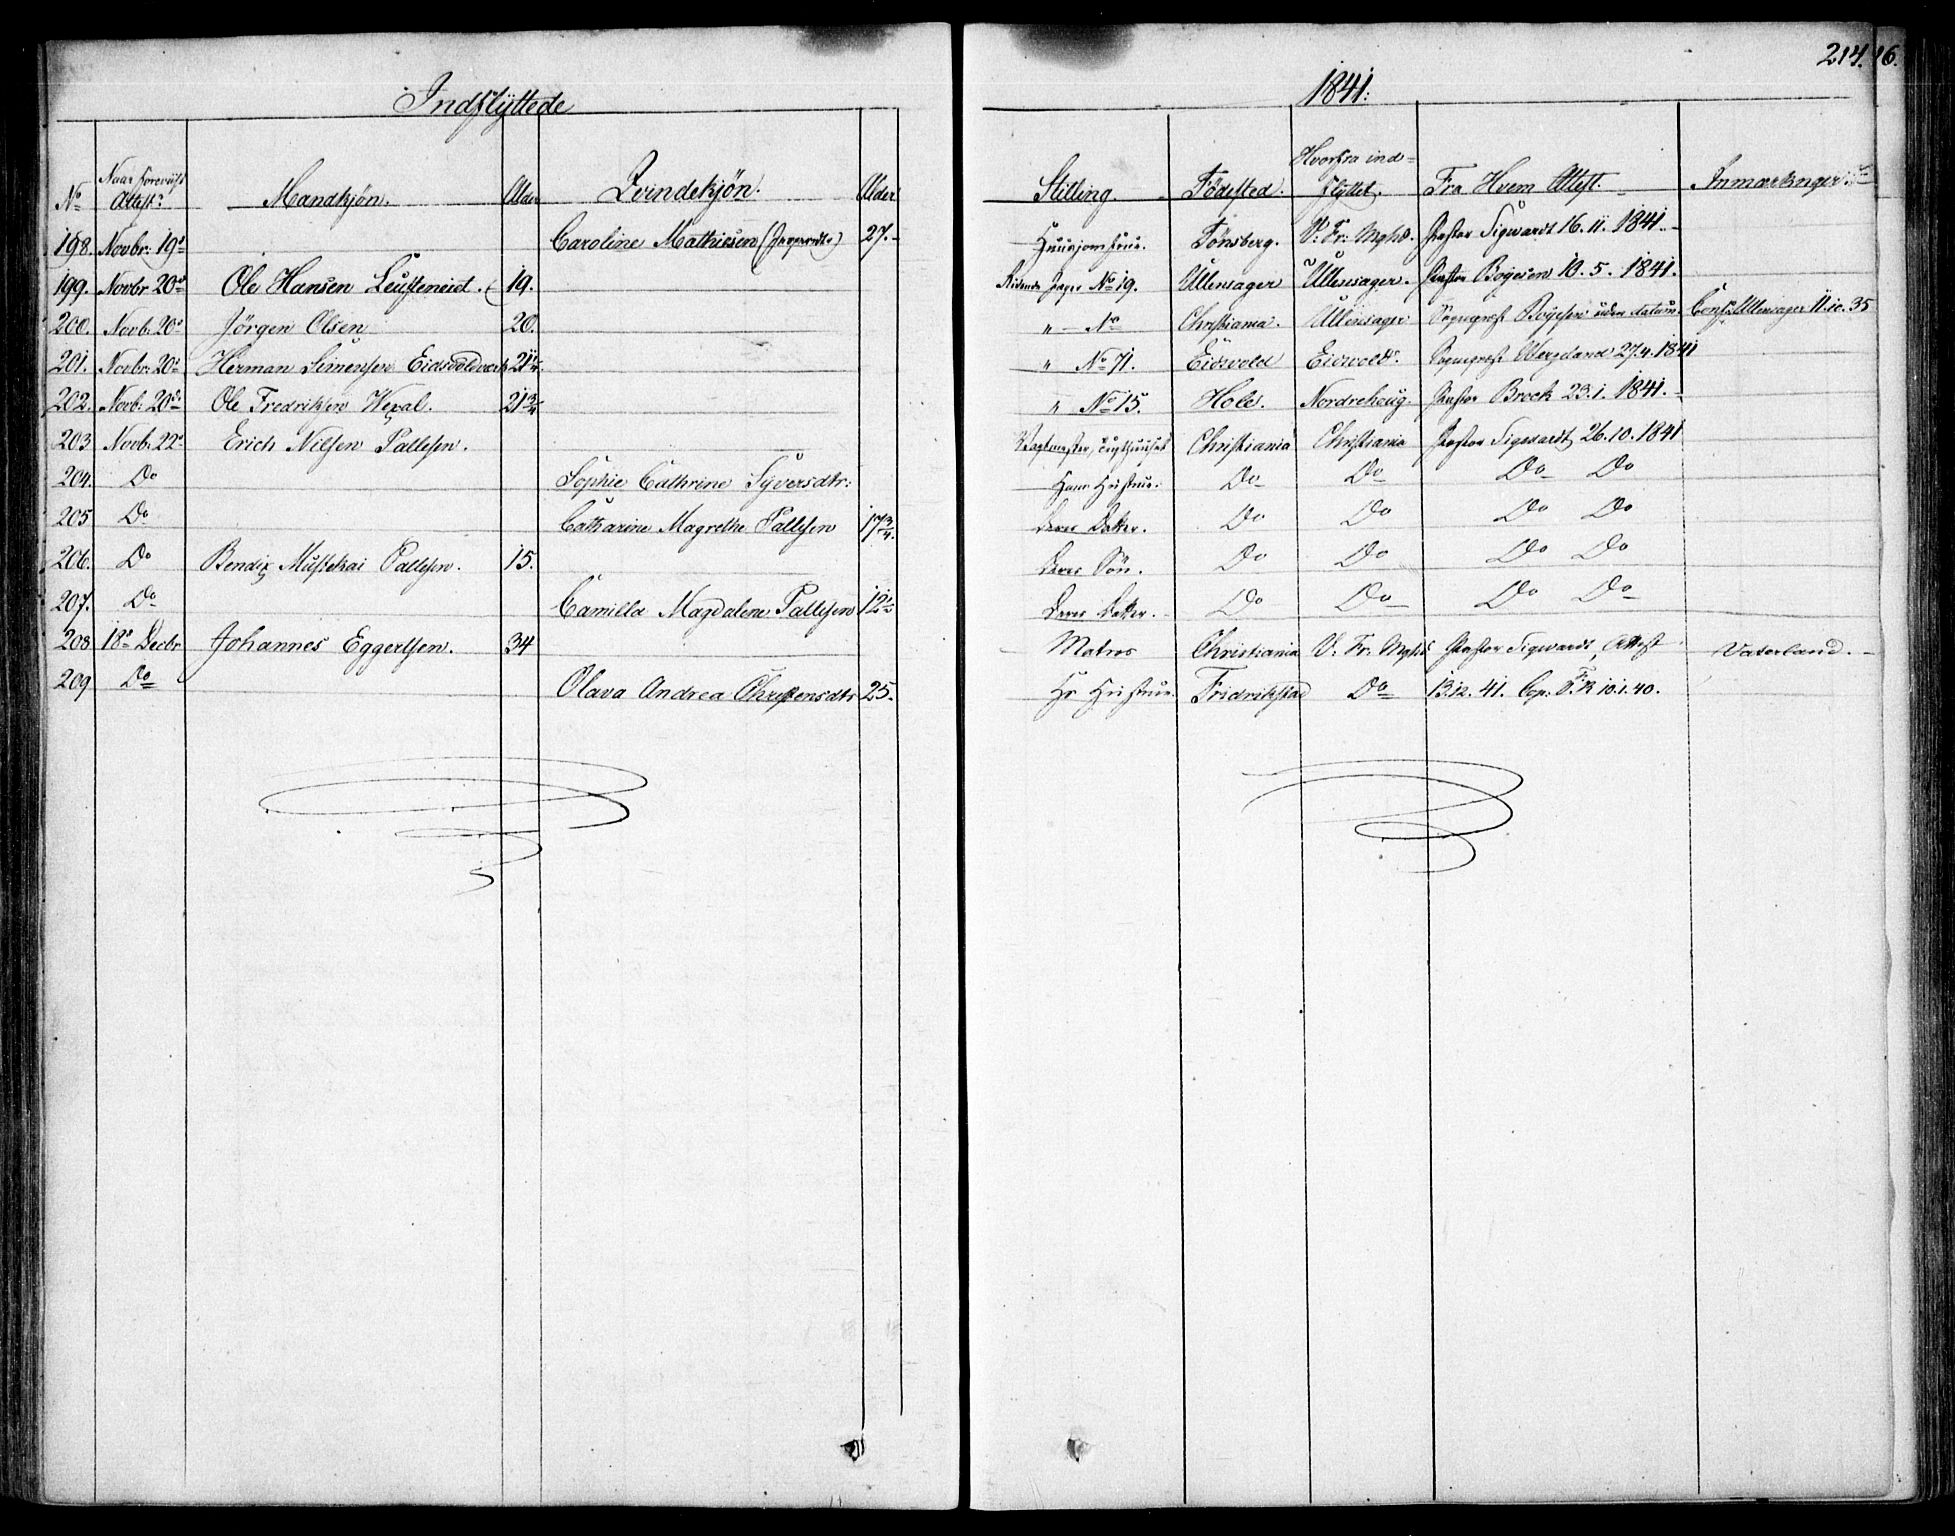 214. 16.
Indflÿttede 1841:
No Naar forevüst Attest? Mandkjön. Alder Qvindekjön. Alder Stilling. Födested. Hvorfra ind= flÿttet. Fra Hvem Attest. Anmærkninger
198. Novbr: 19de Caroline Mathiesen 27. Tönsberg. V: Fr: Mghd. Pastor Sigwardt 16. 11. 1841.
199. Novbr 20de Ole Hansen 19. Ridende Jæger No 19. Ullensager Ullensager. Pastor Boÿesen 10. 5. 1841.
200. Novb. 20de Jörgen Olsen 20. " — No Christiania. Ullensager Sognepræst Boÿesen uden datum. Conf: Ullensager 11. 10. 35
201. Novbr: 20de Herman Simensen Eidsvoldværk 21¼. " No 71. Eidsvold Eidsvold. Sognepræst Wergeland 27. 4. 1841
202. Novb: 20de Ole Fredriksen 21¾ " No 15. Hole. Nordrehoug. Pastor Brock 23. 1. 1841.
203 Novb. 22de Erich Nilsen Pallesen. Vagtmester, Christiania Christiania Pastor Sigwardt 26. 10. 1841
204. Do Sophie Cathrine Syversdtr: Hans Hustrue. Do Do Do Do
205 Do Catharine Magrethe Pallesen 17¾. Deres Datter. Do Do Do Do
206. Do Bendix Pallesen. 15. Deres Sön. Do Do Do Do
207. Do Camilla Magdalene Pallesen 12 Deres Datter. Do Do Do Do
208 18de Decbr Johannes Eggertsen. 34 Matros Christiania V: Fr: Mghd Pastor Sigwardt, Attest Vaterland.
209 Do Olava Andrea Christensdtr 25. Hs Hustrue. Fridrikstad Do 13. 12. 41. Cop: 10. 1. 40.